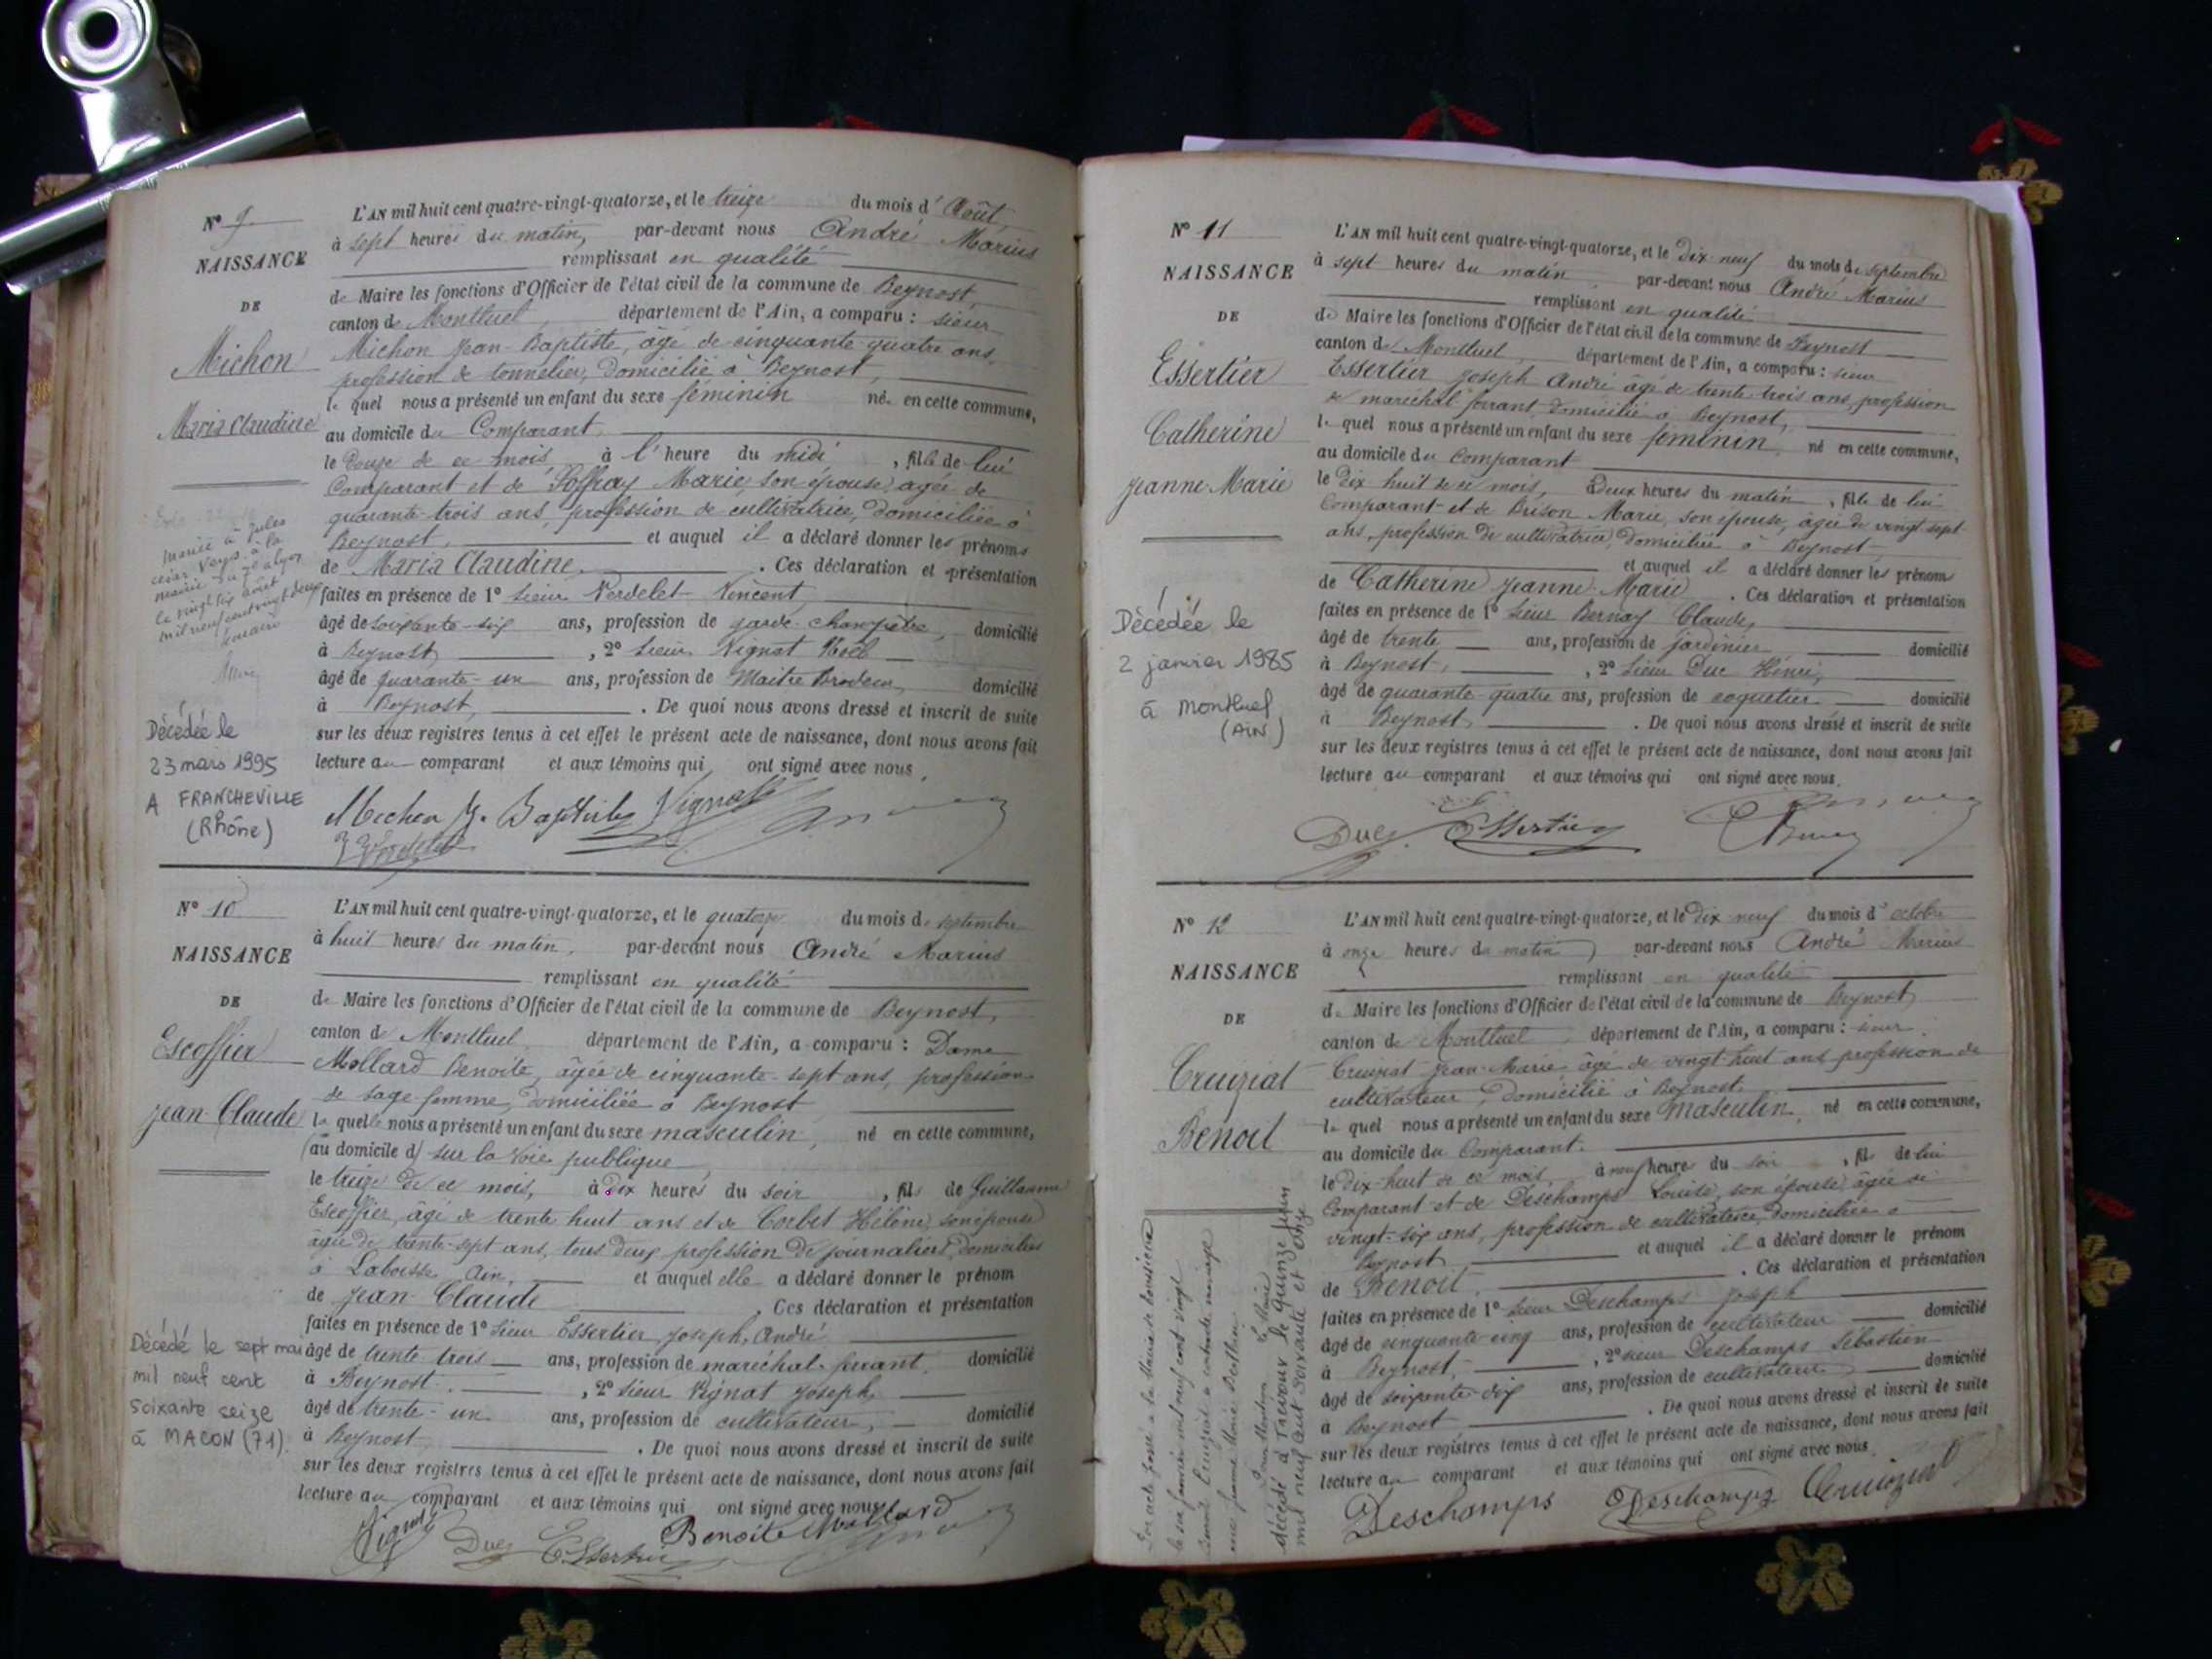 N° 9
NAISSANCE
DE
Michon
Maria Claudine
L'AN mil huit cent quatre-vingt-quatorze, et le treize du mois d' Août
à sept heures du matin, par-devant nous André Marius
remplissant en qualité
de Maire les fonctions d'Officier de l'état civil de la commune de Beynost,
canton de Montluel département de l'Ain, a comparu : sieur
Michon Jean-Baptiste, âgé de cinquante-quatre ans,
profession de tonnelier, domicilié à Beynost,
le quel nous a présenté un enfant du sexe féminin né en cette commune,
au domicile du Comparant,
le douze de ce mois à l'heure du midi, fille de lui
Comparant et de Joffray Marie, son épouse, âgée de
quarante-trois ans, profession de cultivatrice, domiciliée à
Beynost, et auquel il a déclaré donner les prénoms
de Maria Claudine. Ces déclaration et présentation
faites en présence de 1° sieur Verdelet Vincent,
âgé de soixante-six ans, profession de garde-champêtre, domicilié
à Beynost, 2° sieur Vignat Noël
âgé de quarante-un ans, profession de Maître Brodeur, domicilié
à Beynost, . De quoi nous avons dressé et inscrit de suite
sur les deux registres tenus à cet effet le présent acte de naissance, dont nous avons fait
lecture au comparant et aux témoins qui ont signé avec nous,
mariée à Jules
césar Veys à la
mairie du 7e a Lyon
le vingt six août
mil neuf cent vingt deux
Décédée le
23 mars 1995
A FRANCHEVILLE
(Rhône)
Michon J. Baptiste Vignat
Verdelet
N° 10
NAISSANCE
DE
Escoffier
Jean-Claude
L'AN mil huit cent quatre-vingt-quatorze, et le quatorze du mois de septembre
à huit heures du matin, par-devant nous André Marius
remplissant en qualité
de Maire les fonctions d'Officier de l'état civil de la commune de Beynost,
canton de Montluel département de l'Ain, a comparu : Dame
Mollard Benoite, âgée de cinquante-sept ans, profession
de sage-femme, domiciliée à Beynost
la quelle nous a présenté un enfant du sexe masculin, né en cette commune,
(au domicile d) sur la voie publique,
le treize de ce mois, à dix heures du soir, fils de Guillaume
Escoffier, âgé de trente huit ans et de Corbet Hélène, son épouse
âgée de trente-sept ans, tous deux profession de journaliers, domiciliés
à Laboisse Ain, et auquel elle a déclaré donner le prénom
de Jean-Claude . Ces déclaration et présentation
faites en présence de 1° sieur Essertier Joseph, André
âgé de trente trois ans, profession de maréchal-ferrant, domicilié
à Beynost, 2° sieur Vignat Joseph,
âgé de trente-un ans, profession de cultivateur, domicilié
à Beynost, . De quoi nous avons dressé et inscrit de suite
sur les deux registres tenus à cet effet le présent acte de naissance, dont nous avons fait
lecture au comparant et aux témoins qui ont signé avec nous,
Décédé le sept mai
mil neuf cent
soixante seize
à MACON (71).
Vignat Duc Essertier Benoite Mollard
N° 11
NAISSANCE
DE
Essertier
Catherine
Jeanne-Marie
L'AN mil huit cent quatre-vingt-quatorze, et le dix-neuf du mois de septembre
à sept heures du matin, par-devant nous André Marius
remplissant en qualité
de Maire les fonctions d'Officier de l'état civil de la commune de Beynost
canton de Montluel, département de l'Ain, a comparu : sieur
Essertier Joseph André âgé de trente-trois ans, profession
de maréchal ferrant, domicilié à Beynost,
le quel nous a présenté un enfant du sexe féminin, né en cette commune,
au domicile du Comparant
le dix-huit de ce mois, à deux heures du matin, fille de lui
Comparant et de Brison Marie, son épouse, âgée de vingt-sept
ans, profession de cultivatrice, domiciliée à Beynost
et auquel il a déclaré donner les prénoms
de Catherine Jeanne-Marie . Ces déclaration et présentation
faites en présence de 1° sieur Bernay Claude,
âgé de trente ans, profession de jardinier domicilié
à Beynost, 2° sieur Duc Henri,
âgé de quarante-quatre ans, profession de coquetier domicilié
à Beynost, . De quoi nous avons dressé et inscrit de suite
sur les deux registres tenus à cet effet le présent acte de naissance, dont nous avons fait
lecture au comparant et aux témoins qui ont signé avec nous.
Décédée le
2 janvier 1985
à Montluel
(AIN)
Duc Essertier
N° 12
NAISSANCE
DE
Cruiziat
Benoit
L'AN mil huit cent quatre-vingt-quatorze, et le dix-neuf du mois d' octobre
à onze heures du matin, par-devant nous André Marius
remplissant en qualité
de Maire les fonctions d'Officier de l'état civil de la commune de Beynost
canton de Montluel, département de l'Ain, a comparu : sieur
Cruiziat Jean-Marie âgé de vingt huit ans profession de
cultivateur, domicilié à Beynost,
le quel nous a présenté un enfant du sexe masculin, né en cette commune,
au domicile du Comparant.
le dix-huit de ce mois, à neuf heures du soir, fils de lui
Comparant et de Deschamps Louise, son épouse, âgée de
vingt-six ans, profession de cultivatrice, domiciliée à
Beynost et auquel il a déclaré donner le prénom
de Benoit. . Ces déclaration et présentation
faites en présence de 1° sieur Deschamps Joseph
âgé de cinquante-cinq ans, profession de cultivateur domicilié
à Beynost, 2° sieur Deschamps Sébastien
âgé de soixante-dix ans, profession de cultivateur domicilié
à Beynost . De quoi nous avons dressé et inscrit de suite
sur les deux registres tenus à cet effet le présent acte de naissance, dont nous avons fait
lecture au comparant et aux témoins qui ont signé avec nous.
Par acte passé à la Mairie de
le six janvier mil neuf cent vingt
Benoit Cruiziat a contracté mariage
avec Jeanne Marie Berthe
Le Maire
décédé à Trévoux le quinze juin
mil neuf cent soixante et onze
Deschamps Deschamps Cruiziat